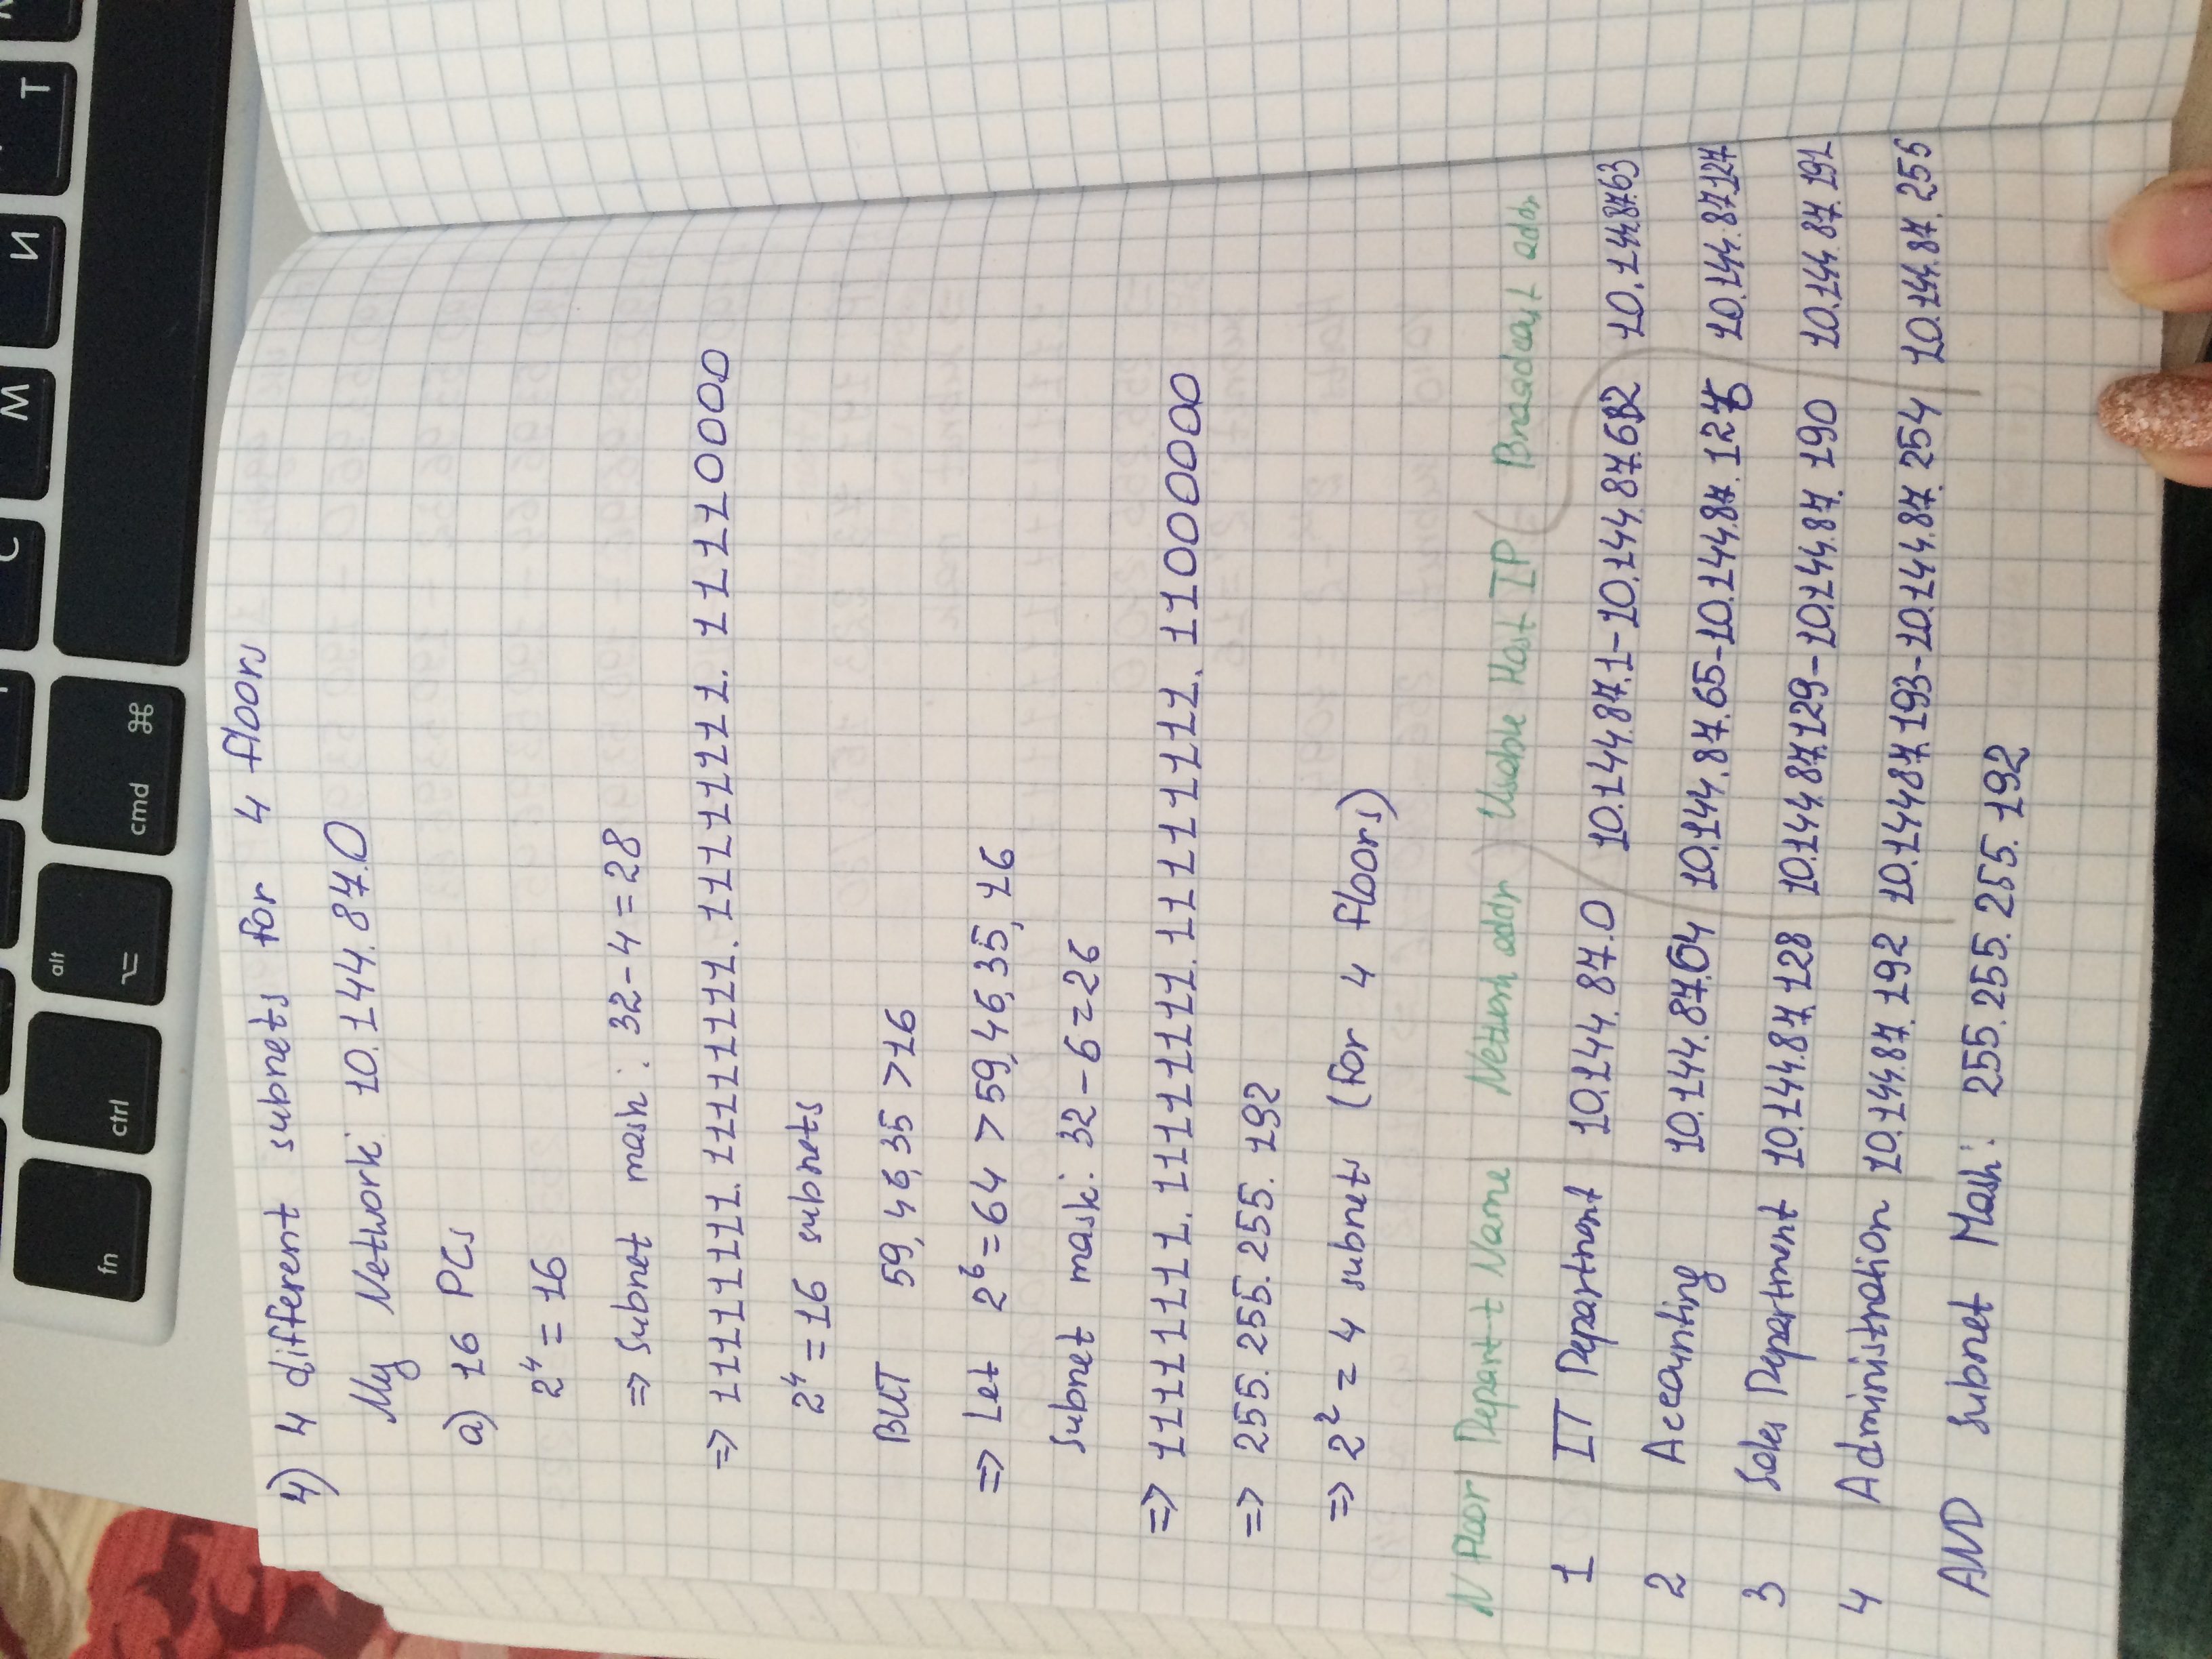 С М И Т
fn ctrl alt cmd ⌘
4) 4 different subnets for 4 floors
My Network: 10.144.87.0
a) 16 PCs
2⁴ = 16
=> Subnet mask: 32-4=28
=> 11111111.11111111.11111111.11110000
2⁴ = 16 subnets
BUT 59, 46, 35 > 16
=> Let 2⁶ = 64 > 59, 46, 35, 16
Subnet mask: 32-6=26
=> 11111111.11111111.11111111.11000000
=> 255.255.255.192
=> 2² = 4 subnets (for 4 floors)
N Floor Depart-t Name Network addr Usable Host IP Broadcast addr
1 IT Department 10.144.87.0 10.144.87.1-10.144.87.62 10.144.87.63
2 Accounting 10.144.87.64 10.144.87.65-10.144.87.126 10.144.87.127
3 Sales Department 10.144.87.128 10.144.87.129-10.144.87.190 10.144.87.191
4 Administration 10.144.87.192 10.144.87.193-10.144.87.254 10.144.87.255
AND Subnet Mask: 255.255.255.192